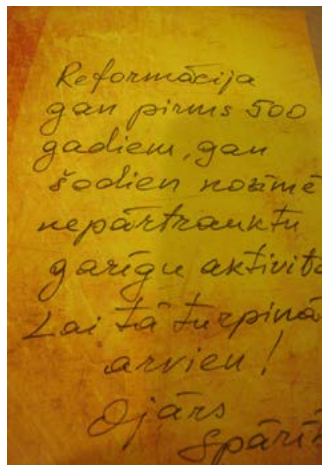 Reformācija
gan pirms 500
gadiem, gan
šodien nozīmē
nepārtrauktu
garīgu aktivitā
Lai tā turpinā
arvien!
Ojārs
Spārīt